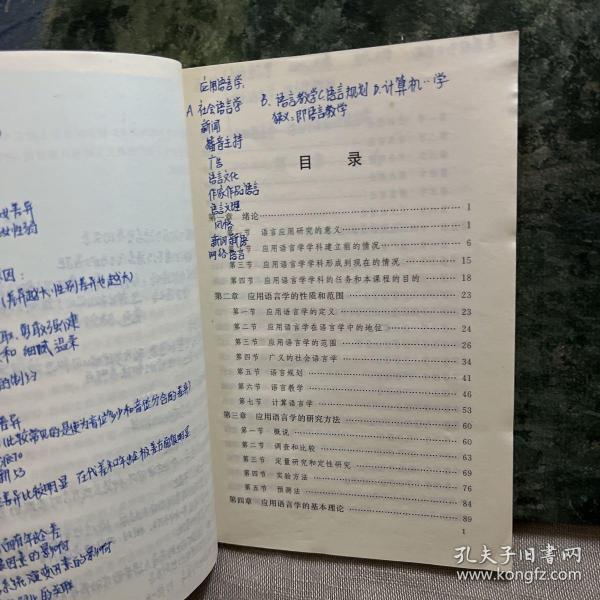 应用语言学:
A 社会语言学
新闻
播音主持
广告
语言文化
作家作品语言
语言文理
风格
新闻
网络语言
B. 语言教学 C 语言规划 D. 计算机··学
狭义:即语言教学
目 录
第一章 绪论 1
第一节 语言应用研究的意义 1
第二节 应用语言学学科建立前的情况 6
第三节 应用语言学学科形成到现在的情况 15
第四节 应用语言学学科的任务和本课程的目的 18
第二章 应用语言学的性质和范围 23
第一节 应用语言学的定义 23
第二节 应用语言学在语言学中的地位 24
第三节 应用语言学的范围 26
第四节 广义的社会语言学 34
第五节 语言规划 41
第六节 语言教学 46
第七节 计算语言学 54
第三章 应用语言学的研究方法 60
第一节 概说 60
第二节 调查和比较 63
第三节 定量研究和定性研究 69
第四节 实验方法 76
第五节 预测法 84
第四章 应用语言学的基本理论 89
1
差异
因:
(差异越大,性别差异也越大)
取 勇敢强健
和 细腻温柔
的制约
差异
差异比较明显
年龄差
因素的影响
孔夫子旧书网
www.kongfz.com